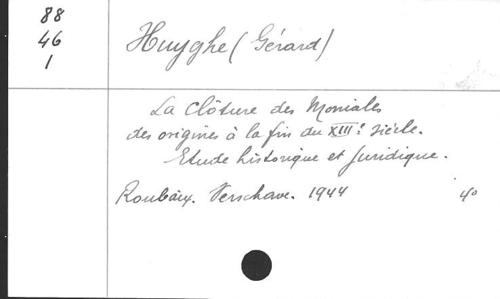 88
46
1
Huyghe (Gérard)
La Clôture des Moniales
des origines à la fin du XIIIe siècle.
Etude historique et juridique.
Roubaix. Verschave. 1944 4°